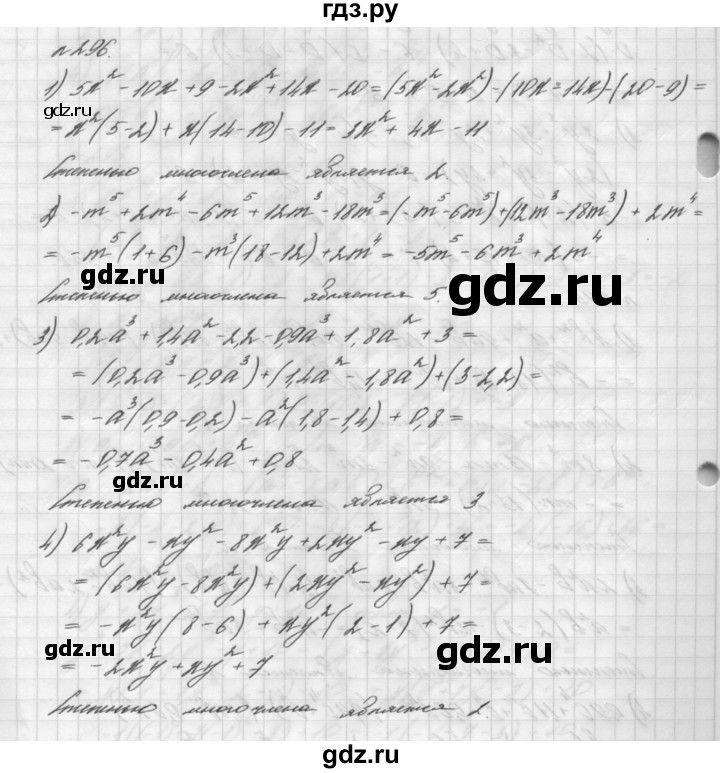 гдз.ру
n 296.
1) 5x² - 10x + 9 - 2x² + 14x - 20 = (5x² - 2x²) - (10x = 14x) - (20 - 9) =
= x²(5-2) + x(14-10) - 11 = 3x² + 4x - 11
gdz.ru
Степенью многочлена является 2.
2) -m⁵ + 2m⁴ - 6m⁵ + 12m³ - 18m³ = (-m⁵ - 6m⁵) + (12m³ - 18m³) + 2m⁴ =
= -m⁵(1+6) - m³(18-12) + 2m⁴ = -5m⁵ - 6m³ + 2m⁴
gdz.ru
gdz.ru
Степенью многочлена является 5.
3) 0,2a³ + 1,4a² - 2,2 - 0,9a³ + 1,8a² + 3 =
= (0,2a³ - 0,9a³) + (1,4a² - 1,8a²) + (3-2,2) =
= -a³(0,9-0,2) - a²(1,8-1,4) + 0,8 =
= -0,7a³ - 0,4a² + 0,8
gdz.ru
gdz.ru
Степенью многочлена является 3.
4) 6x²y - xy² - 8x²y + 2xy² - xy + 7 =
= (6x²y - 8x²y) + (2xy² - xy²) + 7 =
= -x²y(8-6) + xy²(2-1) + 7 =
gdz.ru
gdz.ru
= -2x²y + xy² + 7
Степенью многочлена является 2.
gdz.ru